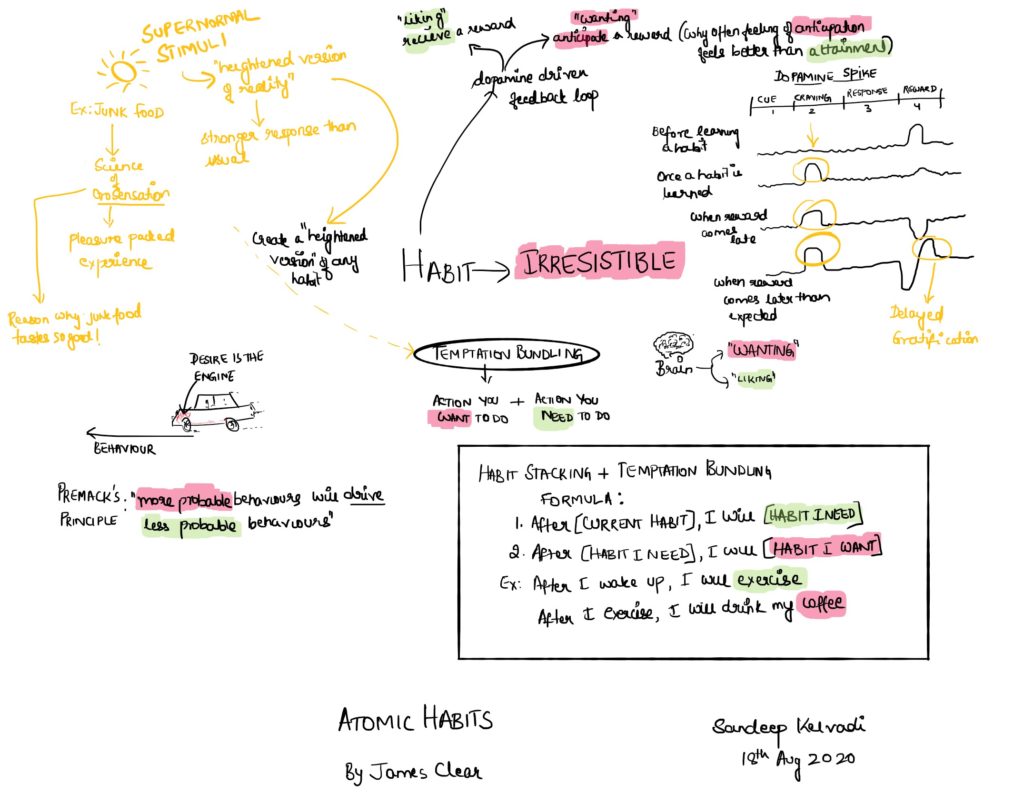 SUPERNORMAL
STIMULI
"heightened version
of reality"
stronger response than
usual
Ex: JUNK FOOD
Science
of
Orosensation
Pleasure packed
experience
Reason why junk food
tastes so good!
"liking"
recieve a reward
"wanting"
anticipate a reward (Why often feeling of anticipation
feels better than attainment)
dopamine driven
feedback loop
Create a "heightened
version" of any
habit
HABIT → IRRESISTIBLE
DOPAMINE SPIKE
CUE CRAVING RESPONSE REWARD
1 2 3 4
Before learning
a habit
Once a habit is
learned
When reward
comes
late
When reward
comes later than
expected
Delayed
Gratification
TEMPTATION BUNDLING
ACTION YOU + ACTION YOU
WANT TO DO NEED TO DO
Brain
"WANTING"
"LIKING"
DESIRE IS THE
ENGINE
BEHAVIOUR
PREMACK'S: "more probable behaviours will drive
PRINCIPLE less probable behaviours"
HABIT STACKING + TEMPTATION BUNDLING
FORMULA:
1. After [CURRENT HABIT], I will [HABIT I NEED]
2. After [HABIT I NEED], I will [HABIT I WANT]
Ex: After I wake up, I will exercise
After I exercise, I will drink my coffee
ATOMIC HABITS
By James Clear
Sandeep Kelvadi
18th Aug 2020